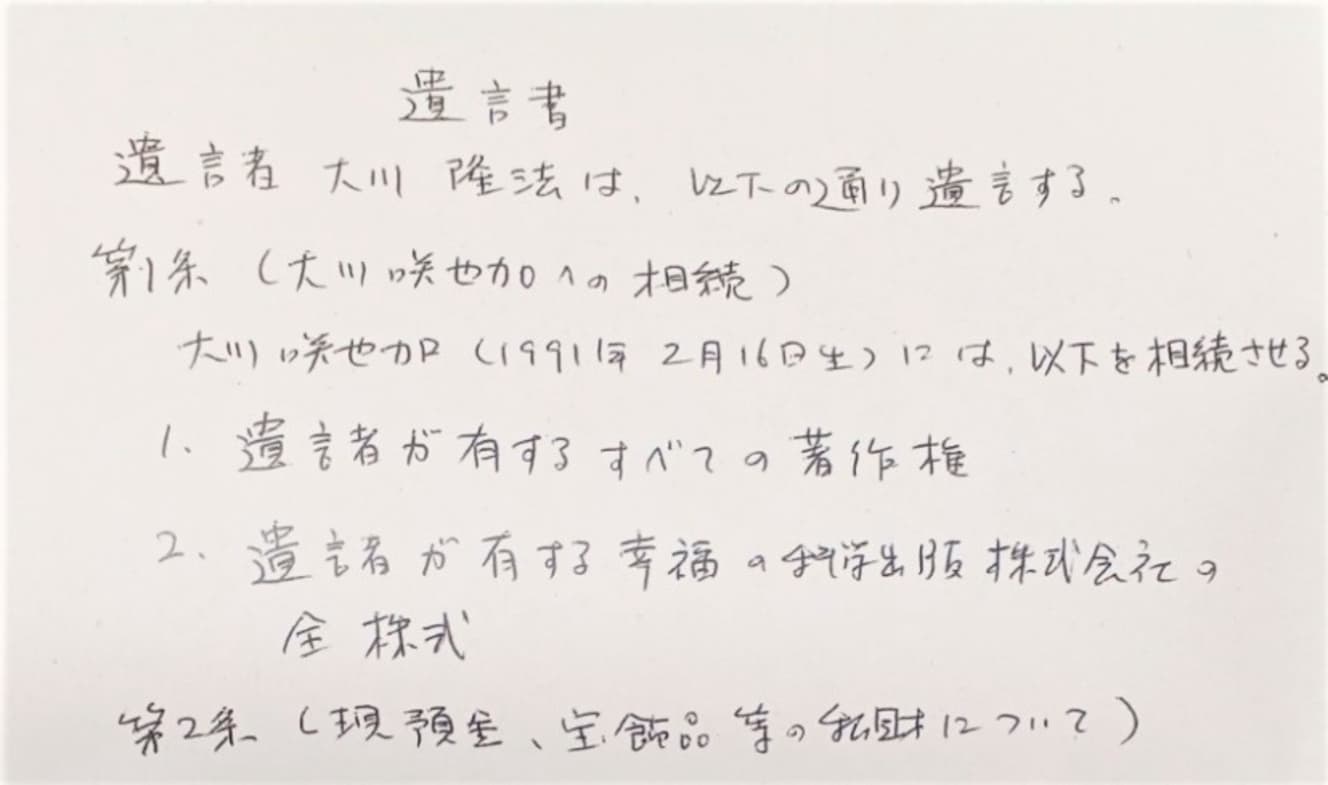 遺言書
遺言者 大川 隆法は、以下の通り遺言する。
第1条（大川咲也加への相続）
大川咲也加（1991年2月16日生）には、以下を相続させる。
1、遺言者が有するすべての著作権
2、遺言者が有する幸福の科学出版株式会社の
全株式
第2条（現預金、宝飾品等の私財について）